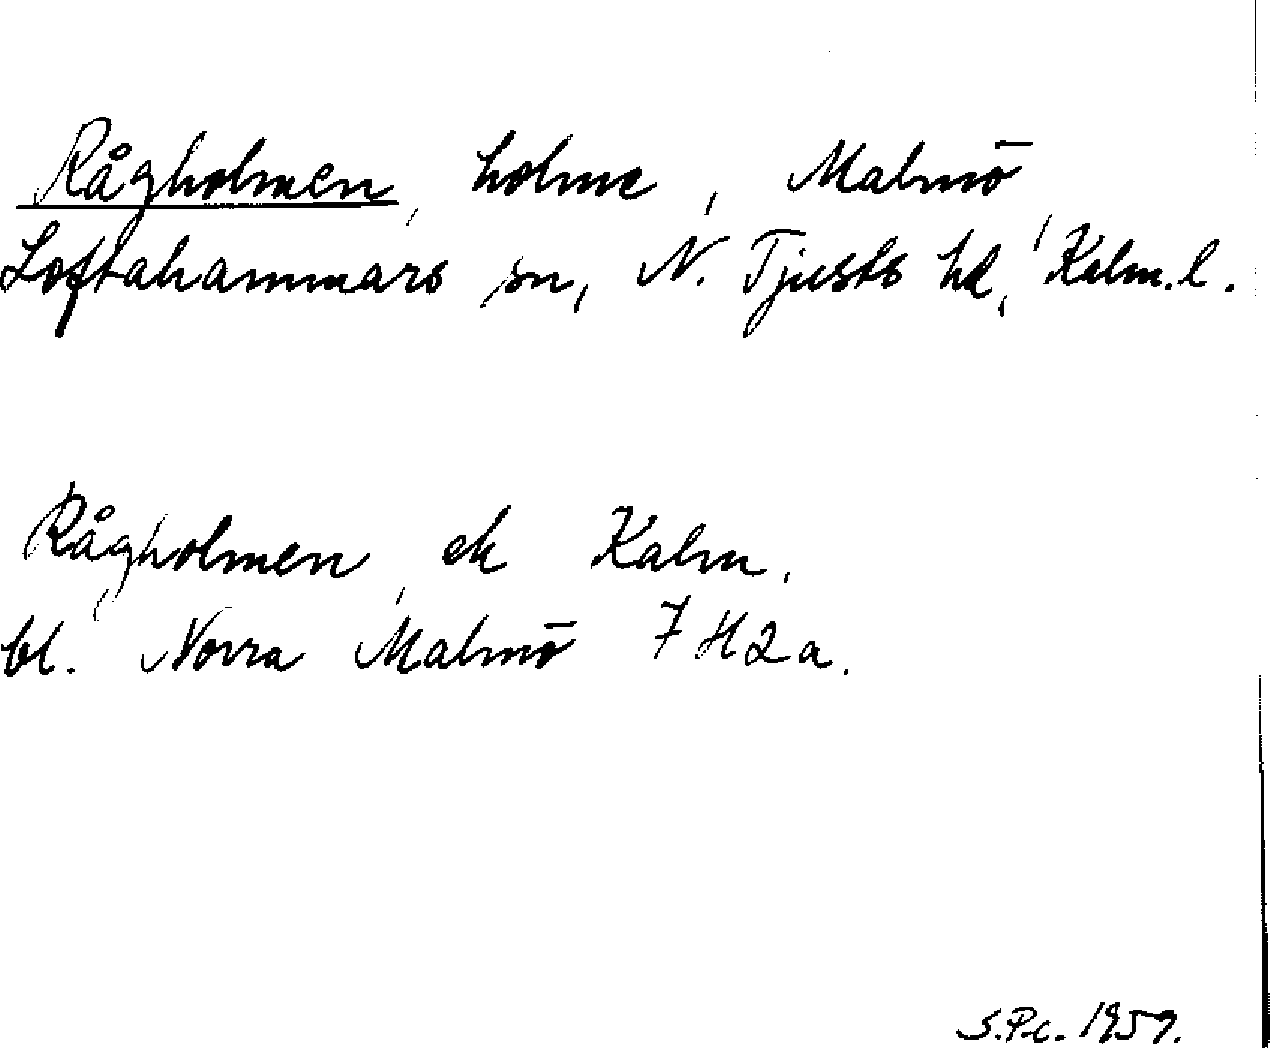 Rågholmen, holme, Malmö,
Loftahammars sn, N. Tjusts hd, Kalm. l.
Rågholmen, ek Kalm.
bl. Norra Malmö 7 H 2 a.
1959.